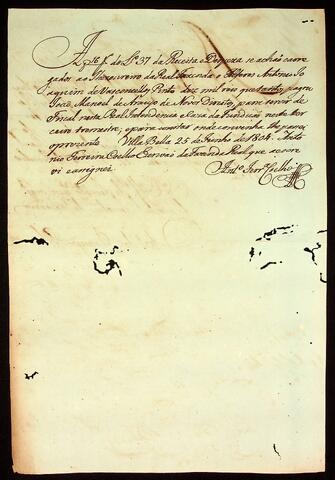 A f 16 f. do L.º 37 da Receita Despeza se achaõ carre-
gados ao Thezoureiro da Real Fazenda o Alferes Antonio Jo-
aquim de Vasconcellos Pinto dez mil reis que pagou
Joze Manoel de Araujo de Novos Direitos, para servir de
Fiscal nesta Real Intendencia e Caza da Fundicaõ neste ter-
ceiro trimestre, e para constar onde convenha lhe passo
o prezente Villa Bella 25 de Junho de 1804. Anto-
nio Ferreira Coelho Escrivaõ da Fazenda Real que o escre-
vi e asignei.
Ant.º Ferr.ª Coelho